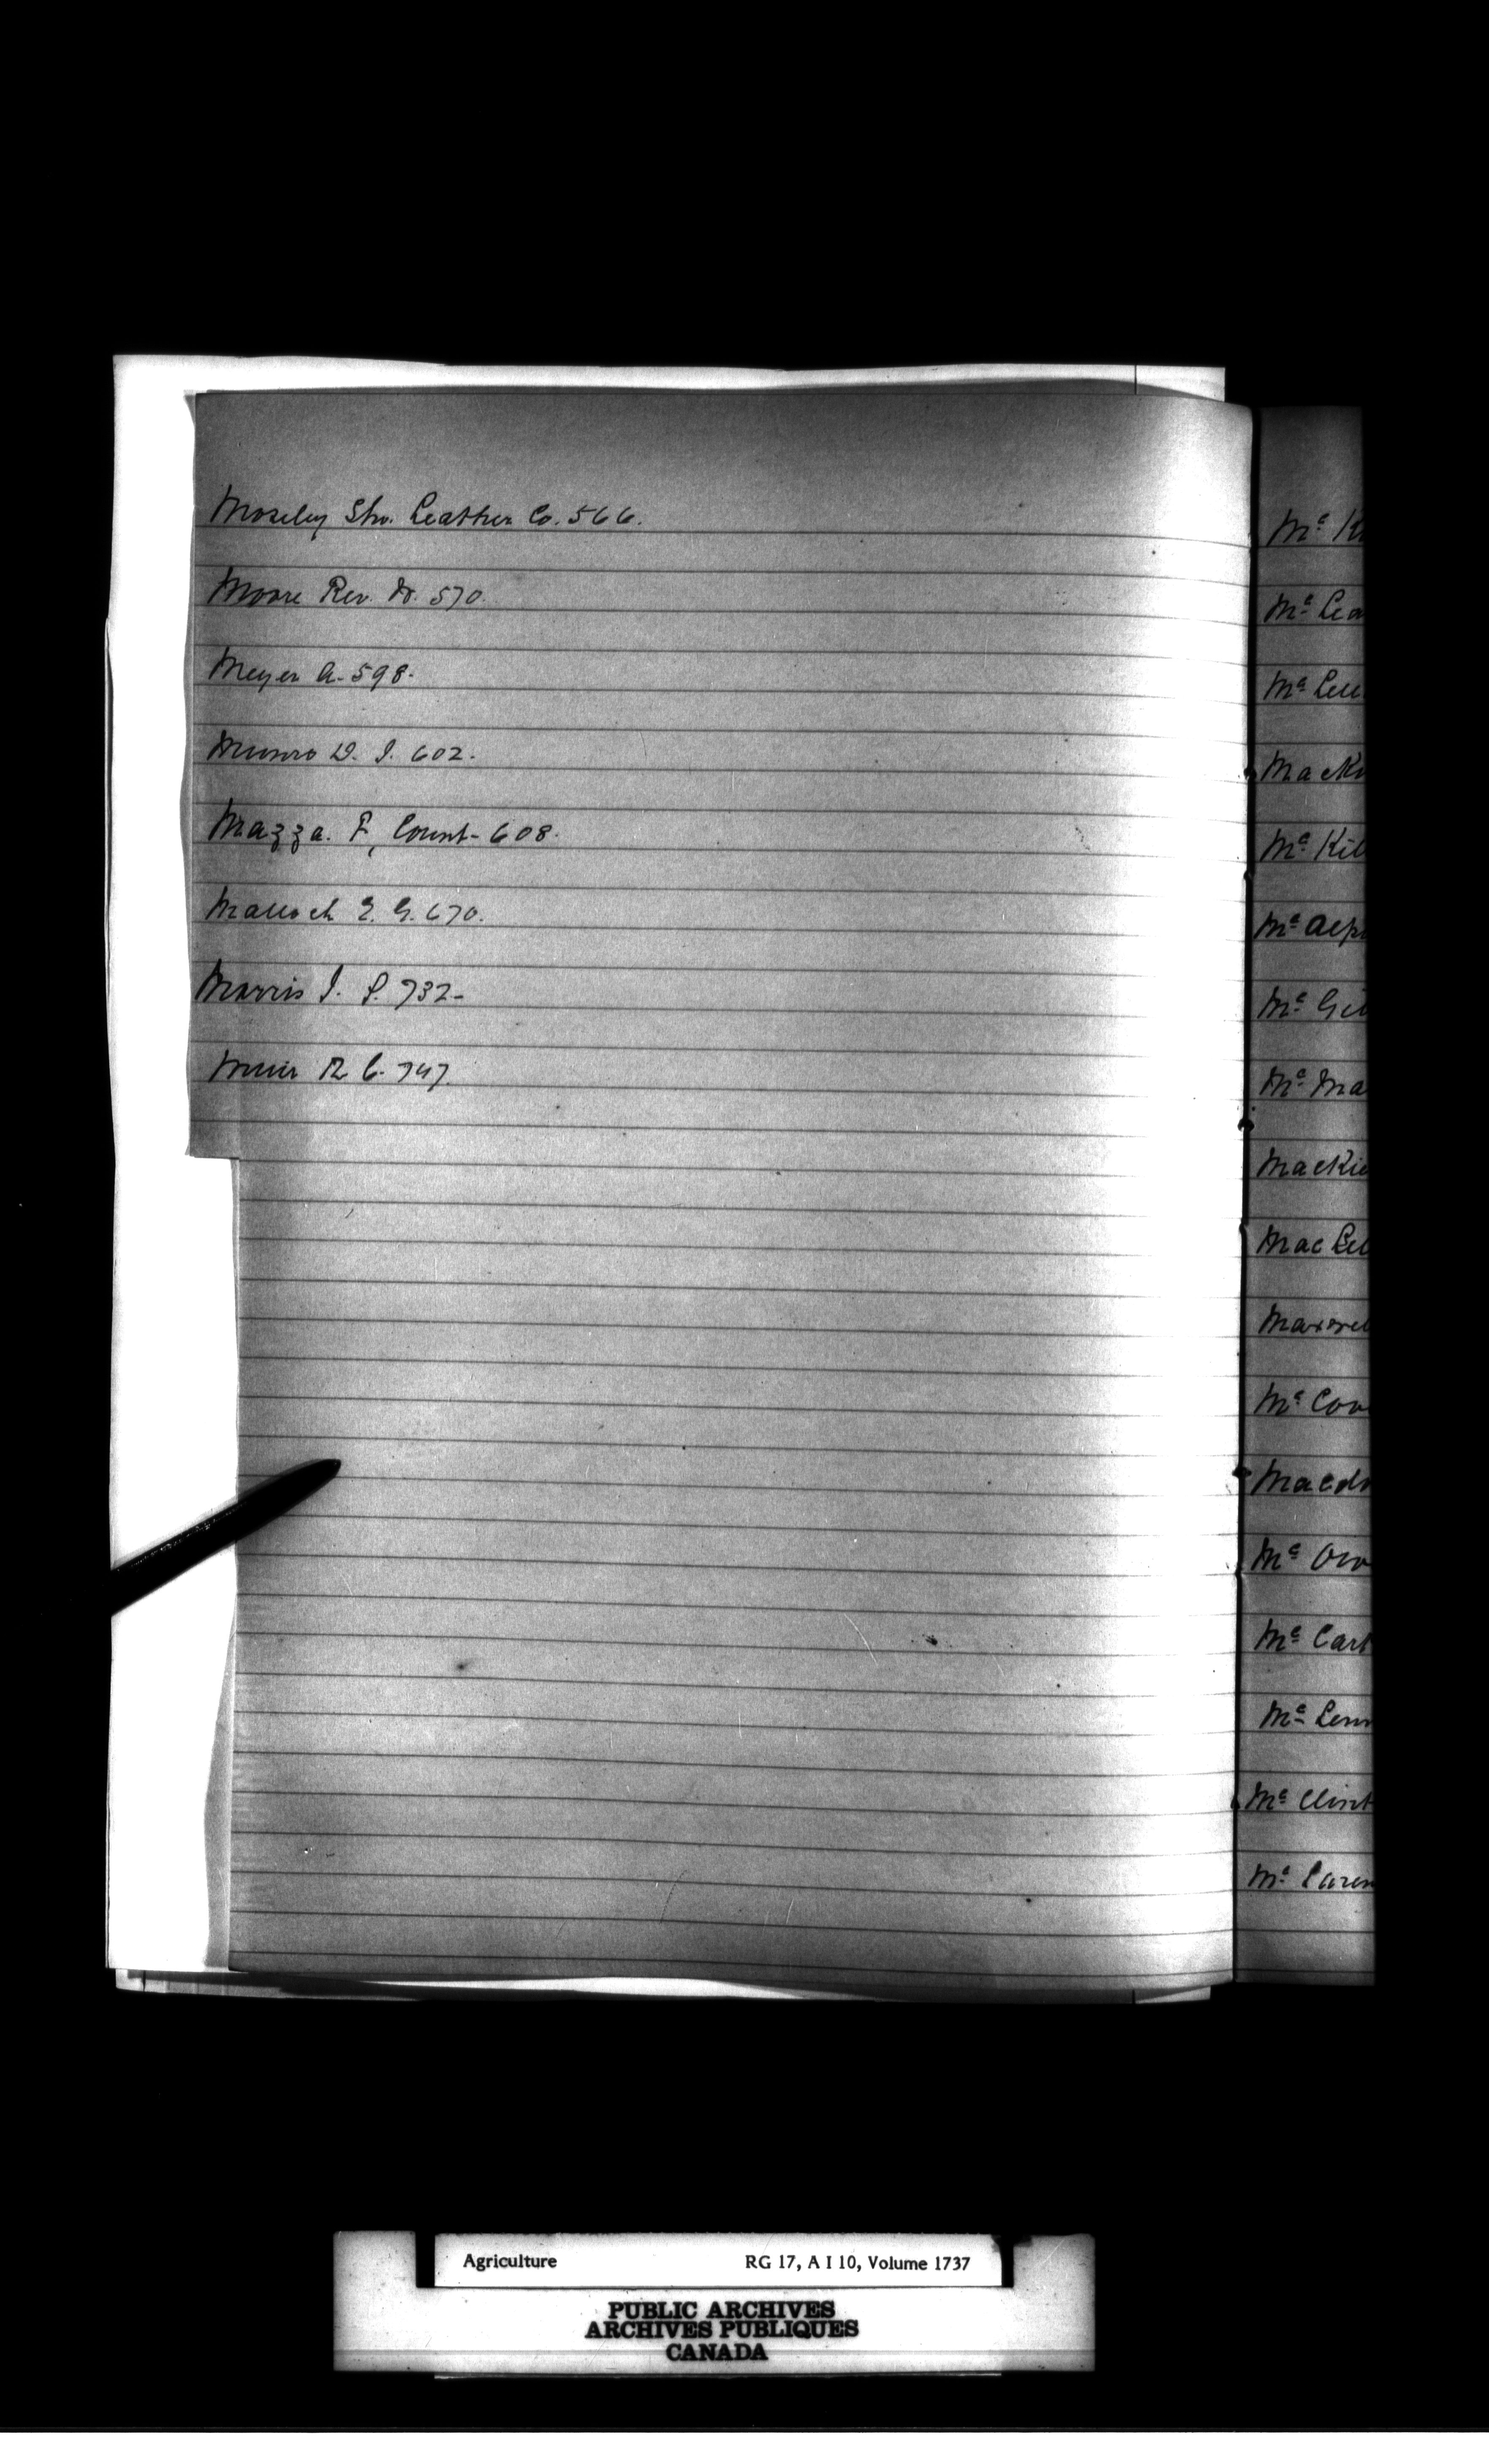 Moseley Sho. Leather Co. 566.
Moore Rev. Dr. 570.
Meyer A. 598.
Munro D. J. 602.
Mazza. F, Count - 608.
Malloch E. G. 670.
Morris J. P. 732-
Muir R C. 747
Mc K
Mc Lea
Mc Lell
MacK
Mc Kil
Mc Alp
Mc Gil
Mc Ma
MacKie
Mac Lel
Maxwel
Mc Con
Macdo
Mc Cart
Mc Lenn
Mc Clint
Mc Laren
Agriculture RG 17, A I 10, Volume 1737
PUBLIC ARCHIVES
ARCHIVES PUBLIQUES
CANADA